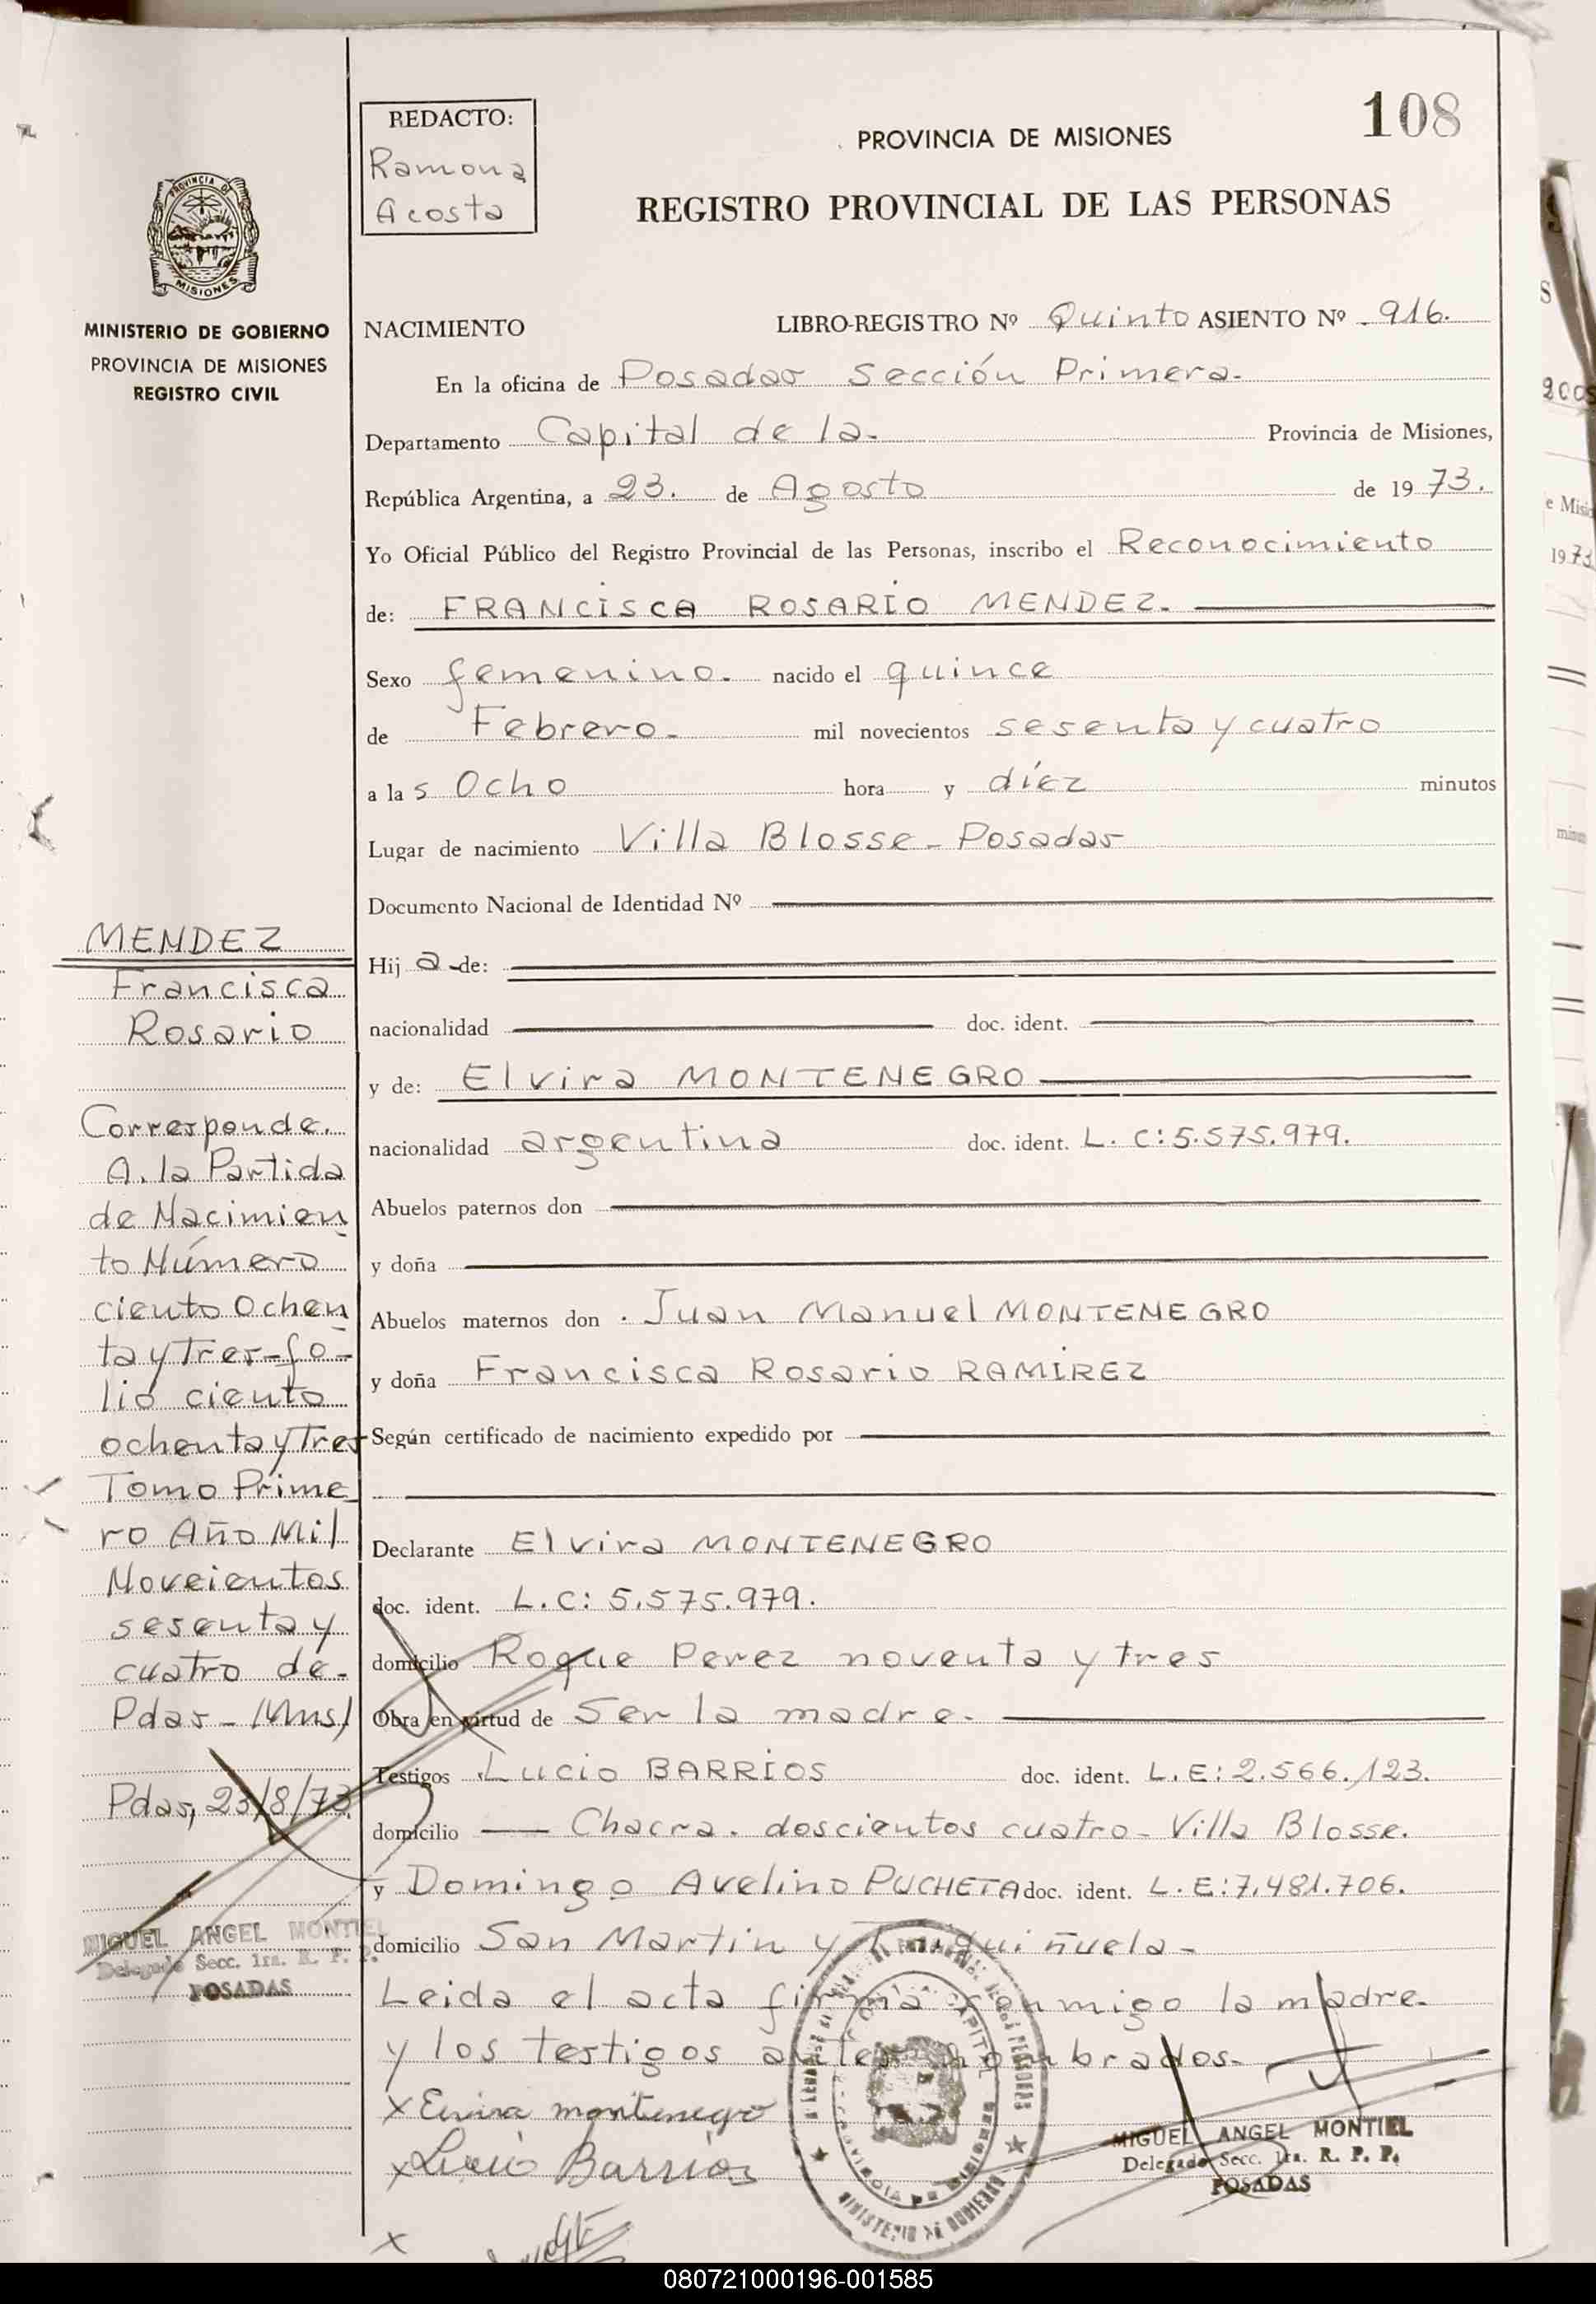 108
REDACTO:
Ramona
Acosta
PROVINCIA DE MISIONES
REGISTRO PROVINCIAL DE LAS PERSONAS
PROVINCIA DE
MISIONES
MINISTERIO DE GOBIERNO
PROVINCIA DE MISIONES
REGISTRO CIVIL
NACIMIENTO LIBRO-REGISTRO Nº Quinto ASIENTO Nº 916.
En la oficina de Posadas Sección Primera.
Departamento Capital de la. Provincia de Misiones,
República Argentina, a 23. de Agosto de 1973.
Yo Oficial Público del Registro Provincial de las Personas, inscribo el Reconocimiento
de: FRANCISCA ROSARIO MENDEZ.
Sexo femenino. nacido el quince
de Febrero. mil novecientos sesenta y cuatro
a las Ocho hora y díez minutos
Lugar de nacimiento Villa Blosse - Posadas
Documento Nacional de Identidad Nº
Hija de:
nacionalidad doc. ident.
y de: Elvira MONTENEGRO
nacionalidad argentina doc. ident. L. C: 5.575.979.
Abuelos paternos don
y doña
Abuelos maternos don Juan Manuel MONTENEGRO
y doña Francisca Rosario RAMÍREZ
Según certificado de nacimiento expedido por
Declarante Elvira MONTENEGRO
doc. ident. L.C: 5.575.979.
domicilio Roque Perez noventa y tres
Obra en virtud de Ser la madre.
Testigos Lucio BARRIOS doc. ident. L.E: 2.566.123.
domicilio — Chacra. doscientos cuatro - Villa Blosse.
y Domingo Avelino PUCHETA doc. ident. L.E: 7.481.706.
domicilio San Martin y
Leida el acta firma conmigo la madre.
y los testigos antes nombrados-
x Elvira montenegro
x Lucio Barrios
x
MENDEZ
Francisca
Rosario
Corresponde.
A. la Partida
de Nacimien
to Número
ciento Ochen
ta y Tres-fo-
lio ciento
ochenta y Tres
Tomo Prime
ro Año Mil
Noveientos
sesenta y
cuatro de-
Pdas - (Mns)
Pdas, 23/8/73.
MIGUEL ANGEL MONTIEL
Delegado Secc. 1ra. R. P. P.
POSADAS
MIGUEL ANGEL MONTIEL
Delegado Secc. 1ra. R. P. P.
POSADAS
MINISTERIO DE GOBIERNO
080721000196-001585